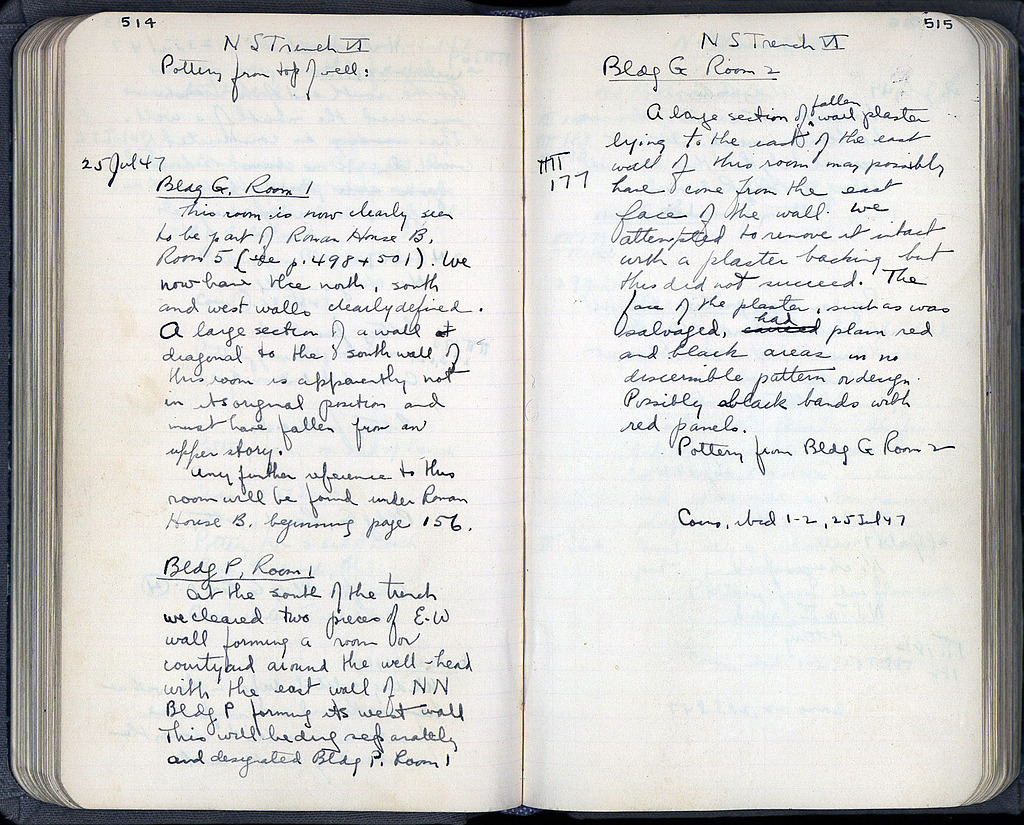 514
N S Trench VI
Pottery from top of well:
25 Jul 47
Bldg G, Room 1
This room is now clearly seen
to be part of Roman House B,
Room 5 (see p. 498 + 501). We
now have the north, south
and west walls clearly defined.
A large section of a wall
diagonal to the south wall of
this room is apparently not
in its original position and
must have fallen from an
upper story.
Any further reference to this
room will be found under Roman
House B, beginning page 156.
Bldg P, Room 1
At the south of the trench
we cleared two pieces of E-W
wall forming a room or
courtyard around the well-head
with the east wall of NN
Bldg P forming its west wall
This will be dug separately
and designated Bldg P. Room 1
515
N S Trench VI
Bldg G Room 2
fallen
A large section of wall plaster
lying to the east of the east
177
wall of this room may possibly
have come from the east
face of the wall. We
attempted to remove it intact
with a plaster backing but
this did not succeed. The
face of the plaster, such as was
had
salvaged, plain red
and black areas in no
discernible pattern or design.
Possibly black bands with
red panels.
Pottery from Bldg G Room 2
Coins, 1-2, 25 Jul 47